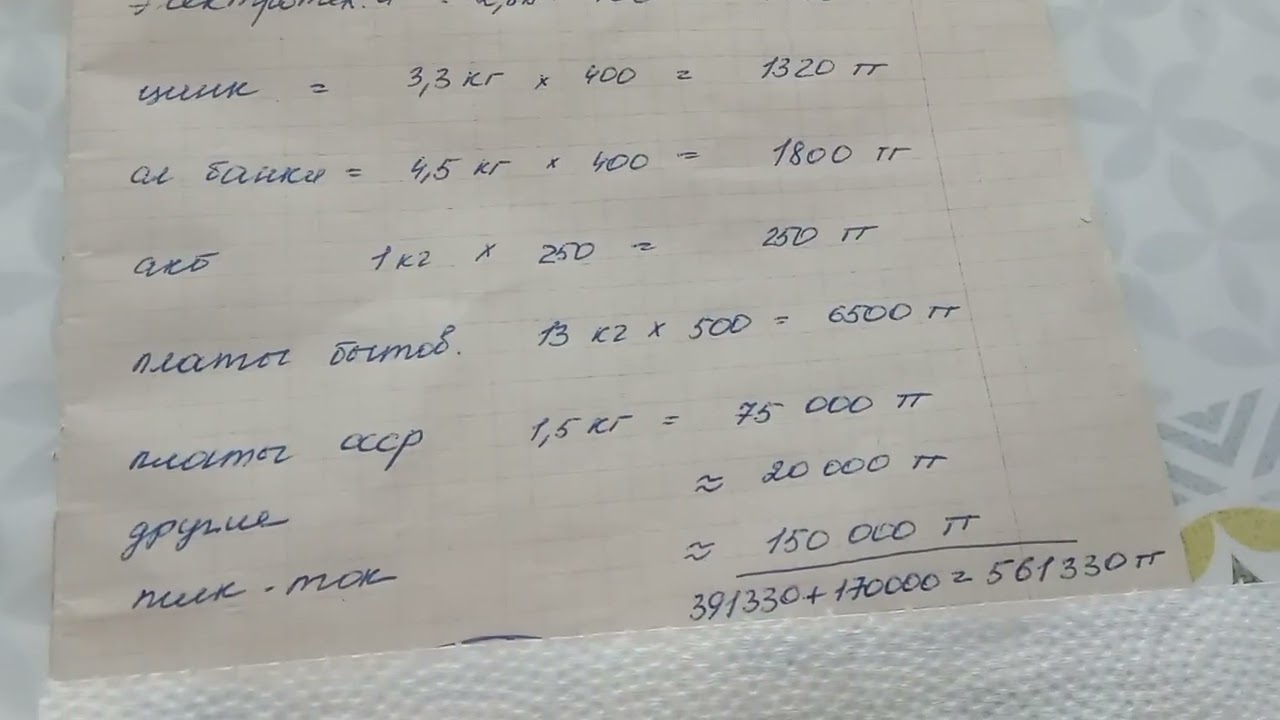 цинк = 3,3 кг × 400 = 1320 тг
ал банки = 4,5 кг × 400 = 1800 тг
акб 1 кг × 250 = 250 тг
платы бытов. 13 кг × 500 = 6500 тг
платы ссср 1,5 кг = 75 000 тг
другие ≈ 20 000 тг
пилк-ток ≈ 150 000 тг
391330 + 170000 = 561330 тг